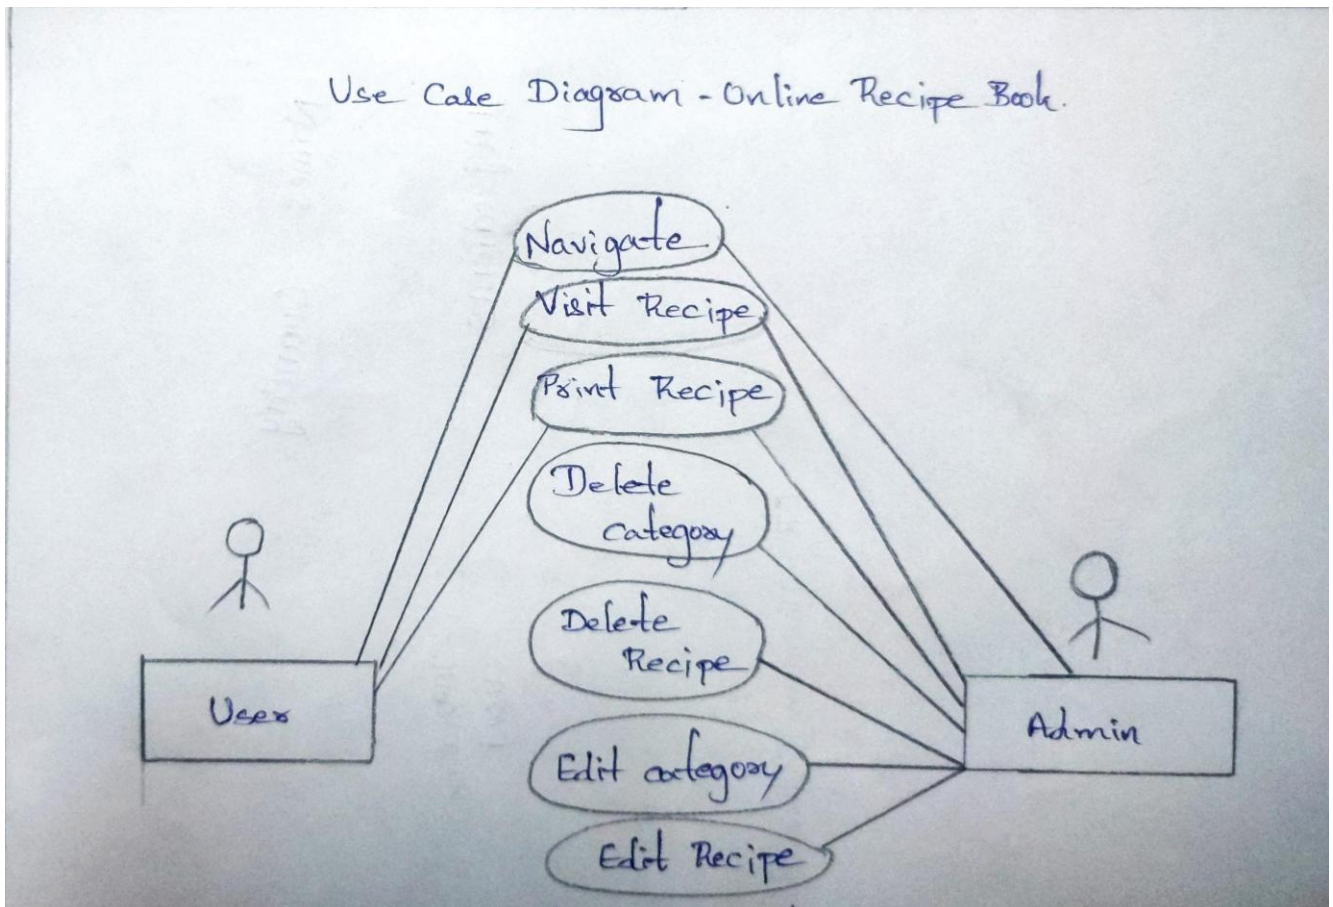 Use Case Diagram - Online Recipe Book.
Navigate
Visit Recipe
Print Recipe
Delete
category
Delete
Recipe
User
Admin
Edit category
Edit Recipe